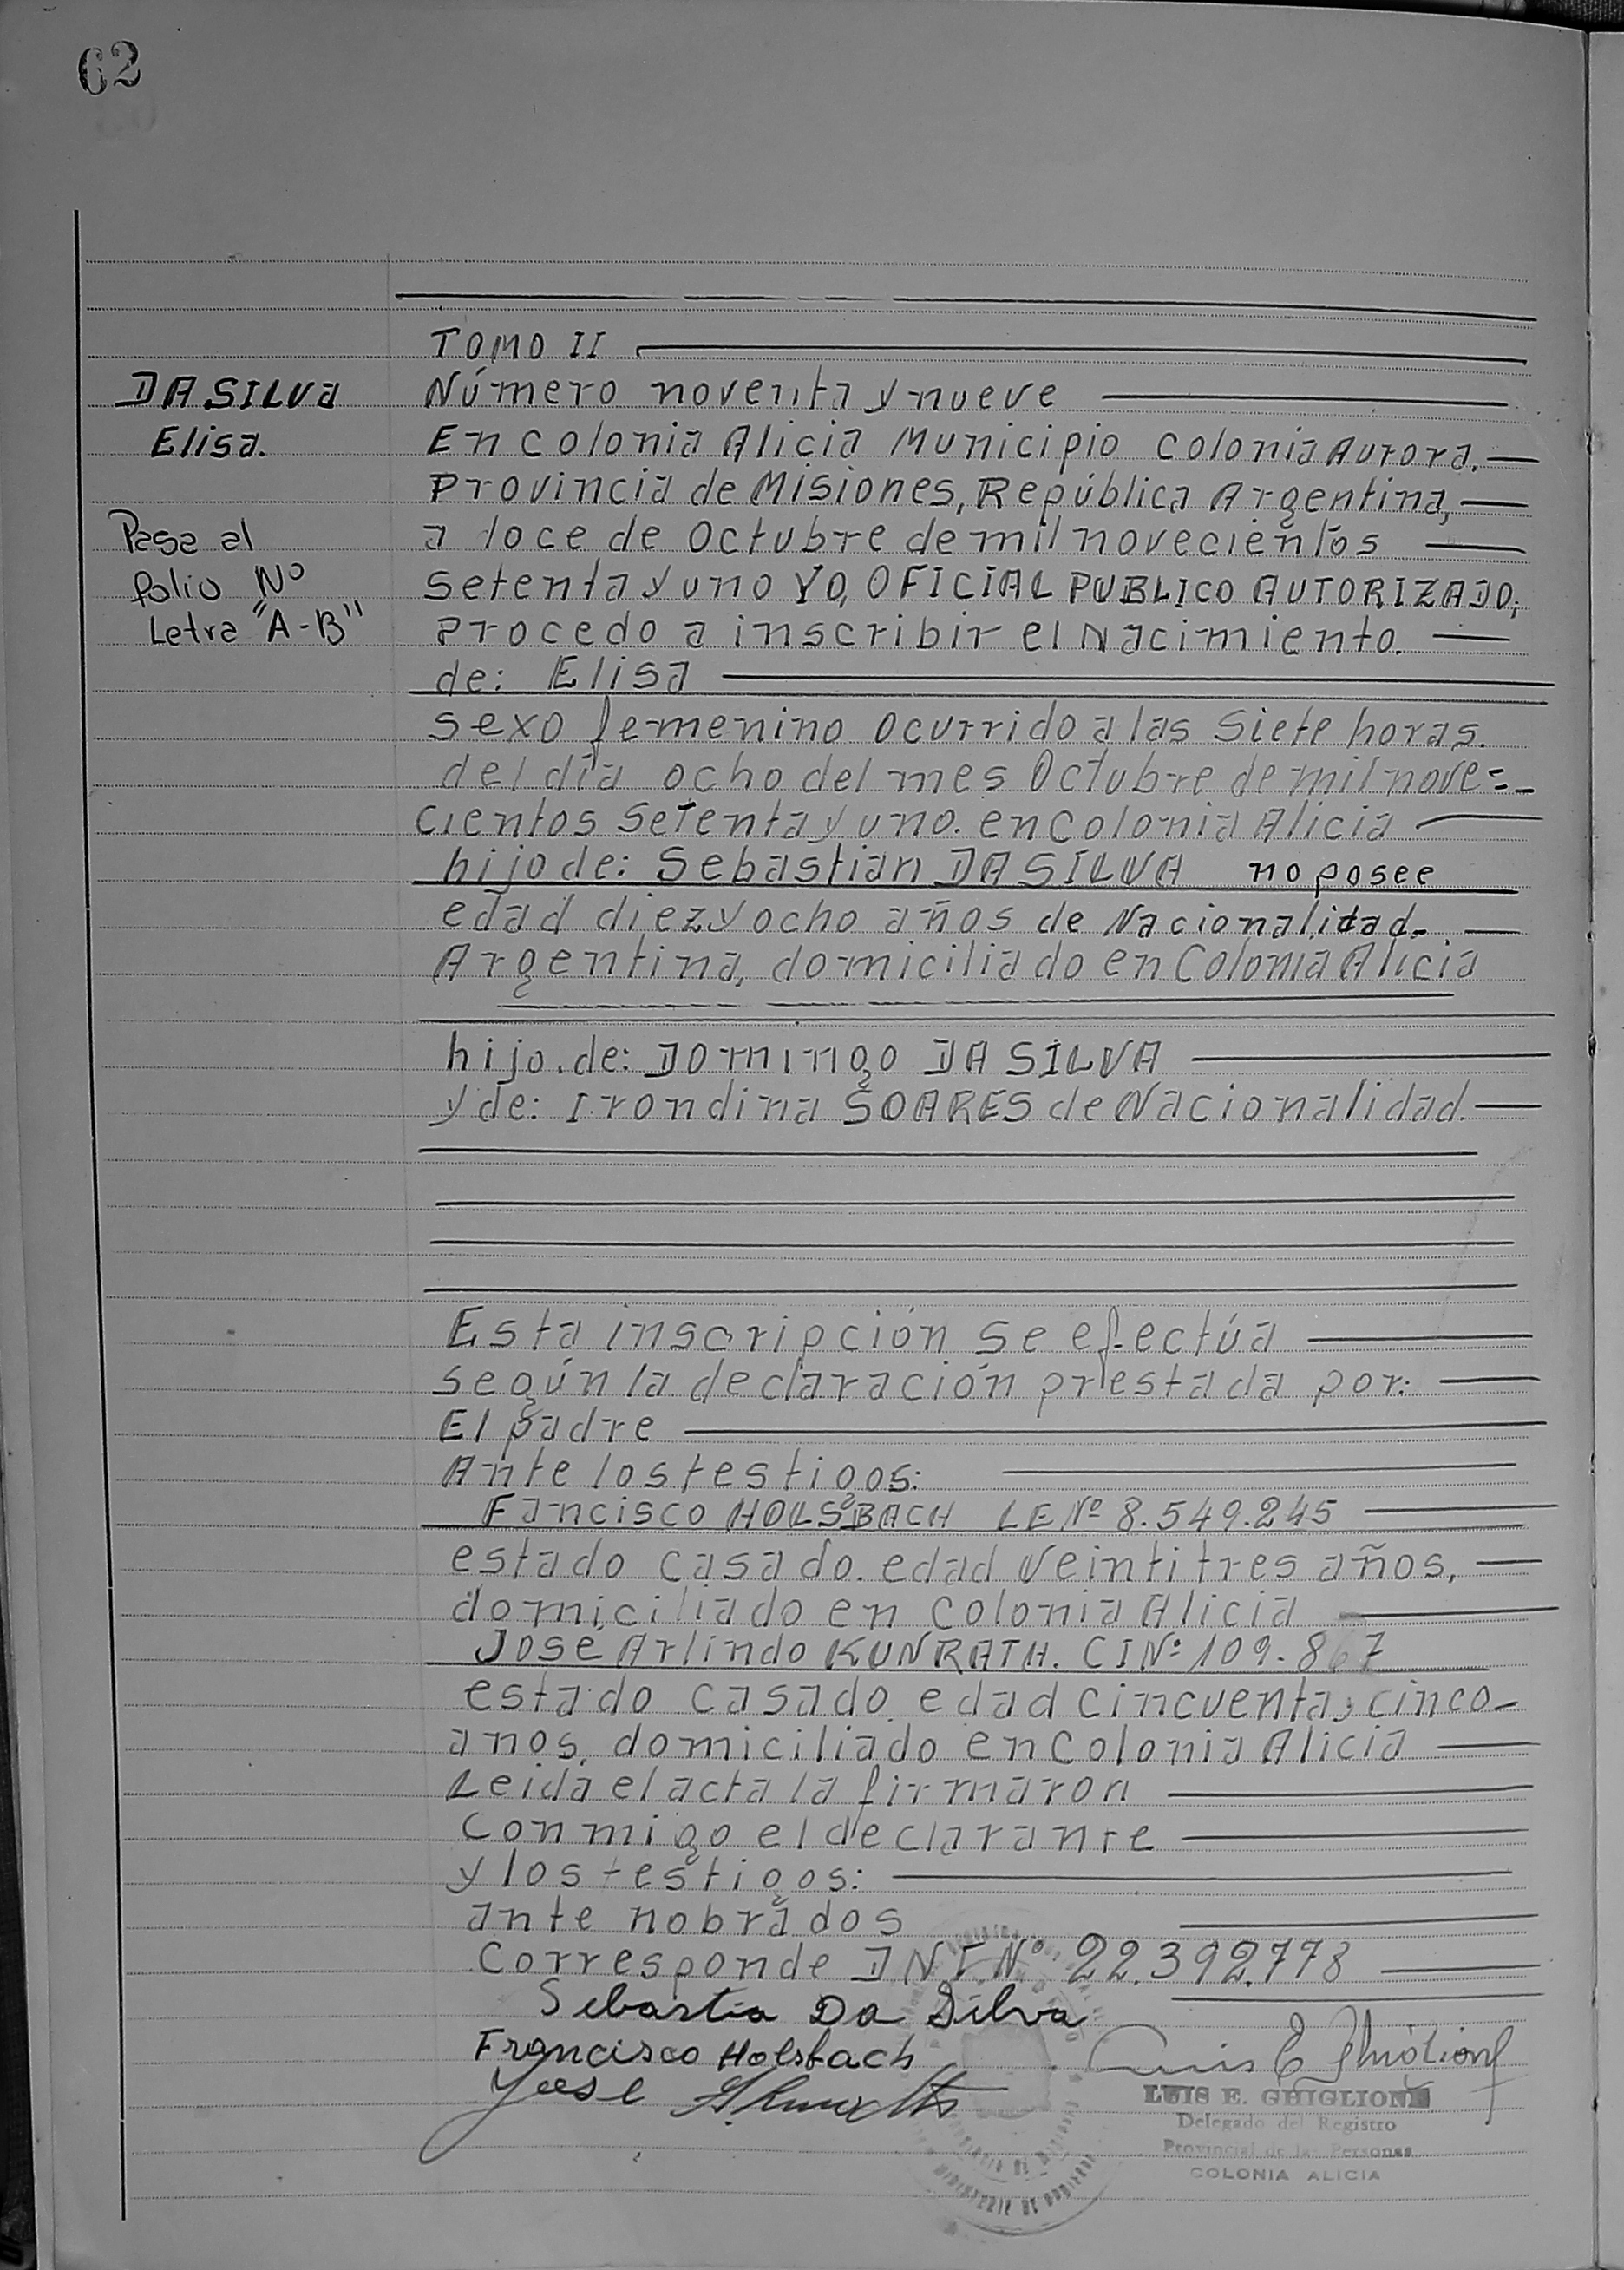 62
TOMO II
DA SILVA
Número noventa y nueve
Elisa.
En Colonia Alicia Municipio Colonia Aurora.
Provincia de Misiones, República Argentina,
Pasa al
a doce de Octubre de mil novecientos
folio Nº
setenta y uno YO, OFICIAL PUBLICO AUTORIZADO;
Letra "A-B"
procedo a inscribir el Nacimiento.
de: Elisa
sexo femenino ocurrido a las Siete horas.
del día ocho del mes Octubre de mil nove=
cientos setenta y uno. en Colonia Alicia
hijo de: Sebastian DA SILVA no posee
edad diez y ocho años de Nacionalidad
Argentina, domiciliado en Colonia Alicia
hijo de: Domingo DA SILVA
y de: Irondina SOARES de Nacionalidad.
Esta inscripción se efectúa
según la declaración prestada por:
El padre
Ante los testigos:
Fancisco HOLSBACH LE Nº 8.549.245
estado casado. edad veintitres años,
domiciliado en Colonia Alicia
José Arlindo KUNRATH. CI Nº 109.867
estado casado edad cincuenta y cinco
anos, domiciliado en Colonia Alicia
Leida el acta la firmaron
Conmigo el declarante
y los testigos:
ante nobrados
Corresponde DNI. Nº 22.392.778
Sebastia Da Silva
Francisco Holsbach
Luis E Ghiglione
LUIS E. GHIGLIONE
Delegado del Registro
Provincial de las Personas
COLONIA ALICIA